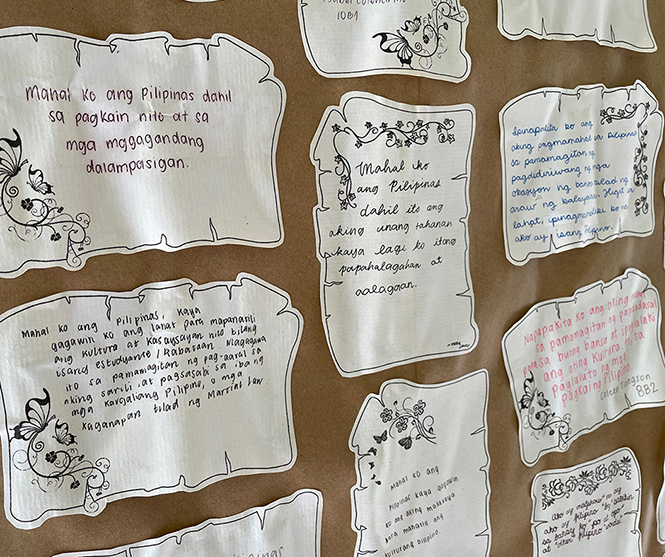 1081
Mahal ko ang Pilipinas dahil
sa pagkain nito at sa
mga mggagandang
dalampasigan.
Mahal ko
ang Pilipinas
dahil ito ang
aking unang tahanan
kaya lagi ko itong
papahalagahan at
aalagaan.
Ipinapakita ko ang
aking pagmamahal sa Pilipinas
sa pamamagitan ng
pagdidiriwang ng mga
okasyon ng bansa tulad ng
araw ng kalayaan. Higit sa
lahat, ipinagmamalaki ko na
ako ay isang Pilipino.
Mahal ko ang Pilipinas, kaya
gagawin ko ang lahat para mapanatili
ang kultura at kasaysayan nito bilang
isang estudyante / kabataan. Magagawa
ito sa pamamagitan ng pag-aaral sa
aking sarili at pagsasabi sa ibang
mga kapwang Pilipino, o mga
kaganapan tulad ng Martial Law.
Napapakita ko ang aking
sa pamamagitan ng pagdadasal
para sa buong bansa at
ang aking kultura sa
pagluluto ng mga
pagkaing Pilipino.
Tiongson
8B2
Mahal ko ang
Pilipinas kaya gagawin
ko ang aking makakaya
para manatili ang
kulturang Pilipino.
ako ay Pilipino
sa bahay